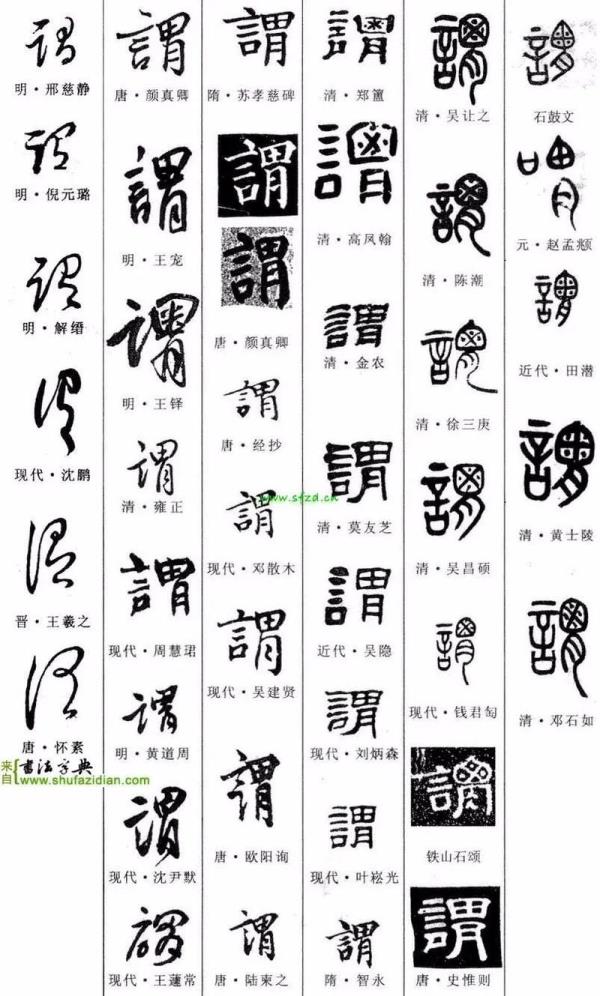 謂
明·邢慈静
謂
明·倪元璐
謂
明·解缙
謂
现代·沈鹏
謂
晋·王羲之
謂
唐·怀素
来自 书法字典
www.shufazidian.com
謂
唐·颜真卿
謂
明·王宠
謂
明·王铎
謂
清·雍正
謂
现代·周慧珺
謂
明·黄道周
謂
现代·沈尹默
謂
现代·王蘧常
謂
隋·苏孝慈碑
謂
謂
唐·颜真卿
謂
唐·经抄
謂
现代·邓散木
謂
现代·吴建贤
謂
唐·欧阳询
謂
唐·陆柬之
www.sfzd.cn
謂
清·郑簠
謂
清·高凤翰
謂
清·金农
謂
清·莫友芝
謂
近代·吴隐
謂
现代·刘炳森
謂
现代·叶崧光
謂
隋·智永
謂
清·吴让之
謂
清·陈潮
謂
清·徐三庚
謂
清·吴昌硕
謂
现代·钱君匋
謂
铁山石颂
謂
唐·史惟则
謂
石鼓文
喟
元·赵孟頫
謂
近代·田潜
謂
清·黄士陵
謂
清·邓石如